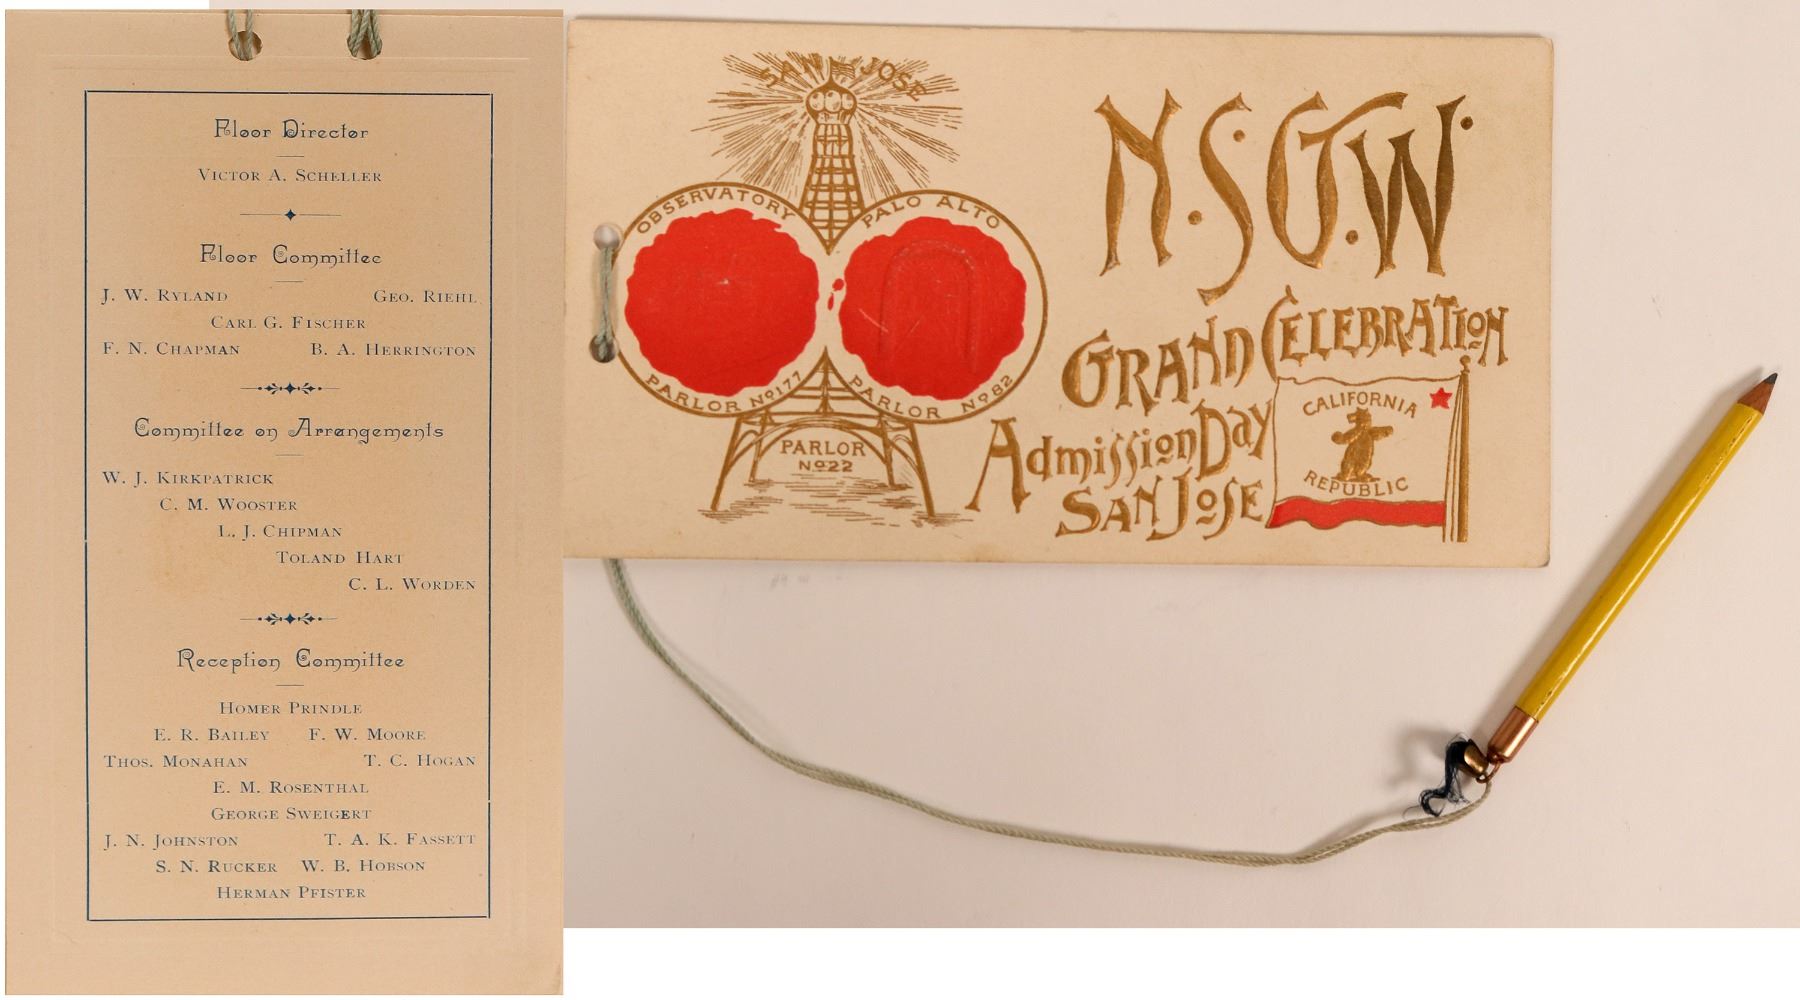 Floor Director
VICTOR A. SCHELLER
Floor Committee
J. W. RYLAND GEO. RIEHL
CARL G. FISCHER
F. N. CHAPMAN B. A. HERRINGTON
Committee on Arrangements
W. J. KIRKPATRICK
C. M. WOOSTER
L. J. CHIPMAN
TOLAND HART
C. L. WORDEN
Reception Committee
HOMER PRINDLE
E. R. BAILEY F. W. MOORE
THOS. MONAHAN T. C. HOGAN
E. M. ROSENTHAL
GEORGE SWEIGERT
J. N. JOHNSTON T. A. K. FASSETT
S. N. RUCKER W. B. HOBSON
HERMAN PFISTER
SAN JOSE
OBSERVATORY
PARLOR No 177
PALO ALTO
PARLOR No 82
PARLOR
No 22
N.S.G.W.
GRAND CELEBRATION
Admission Day
SAN JOSE
CALIFORNIA
REPUBLIC